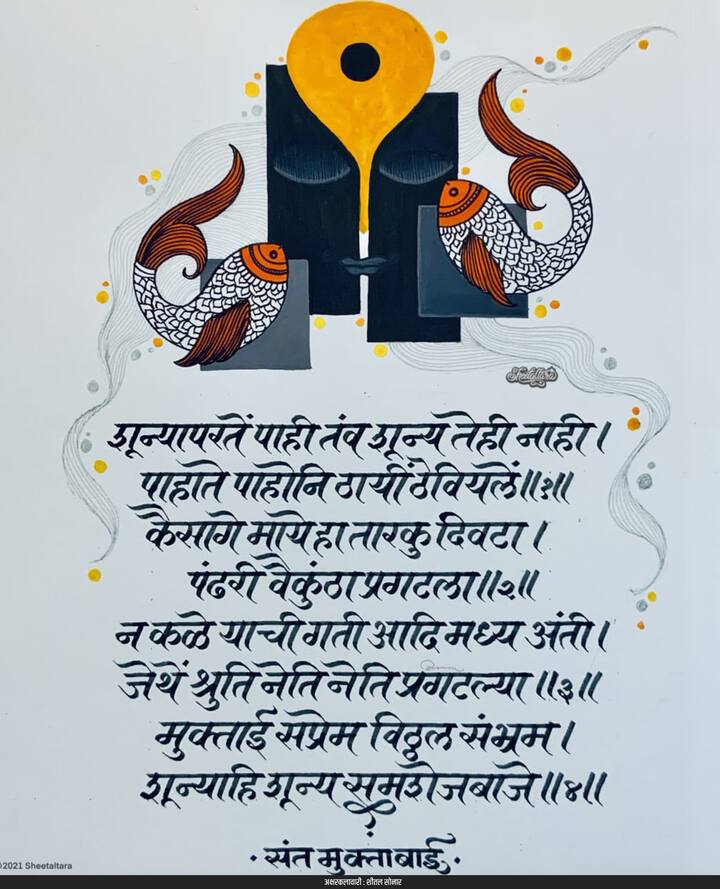 Sheetaltara
शून्यापरतें पाही तंव शून्य तेही नाही।
पाहाते पाहोनि ठायीं ठेवियलें॥१॥
कैसागे माये हा तारकु दिवटा।
पंढरी वैकुंठा प्रगटला॥२॥
न कळे याची गती आदि मध्य अंती।
जेथें श्रुति नेति नेति प्रगटल्या॥३॥
मुक्ताई सप्रेम विठ्ठल संभ्रम।
शून्याहि शून्य समशेजबाजे॥४॥
· संत मुक्ताबाई ·
©2021 Sheetaltara
अक्षरकलावारी : शीतल सोनार